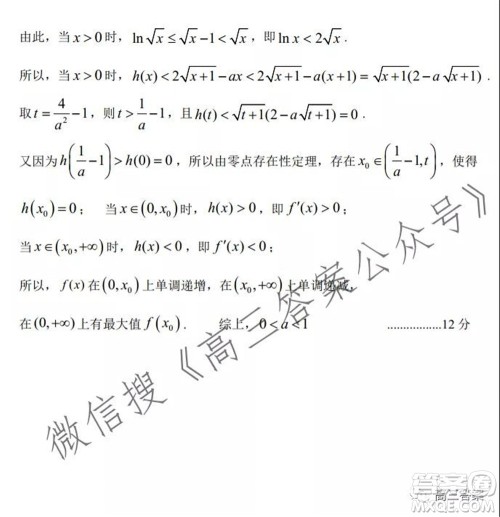 由此，当 x > 0 时，ln√x ≤ √x − 1 < √x，即 ln x < 2√x．
所以，当 x > 0 时，h(x) < 2√(x+1) − ax < 2√(x+1) − a(x+1) = √(x+1)(2 − a√(x+1))．
取 t = 4/a² − 1，则 t > 1/a − 1，且 h(t) < √(t+1)(2 − a√(t+1)) = 0．
又因为 h(1/a − 1) > h(0) = 0，所以由零点存在性定理，存在 x₀ ∈ (1/a − 1, t)，使得
h(x₀) = 0； 当 x ∈ (0, x₀) 时，h(x) > 0，即 f′(x) > 0；
当 x ∈ (x₀, +∞) 时，h(x) < 0，即 f′(x) < 0；
所以，f(x) 在 (0, x₀) 上单调递增，在 (x₀, +∞) 上单调递减，
在 (0, +∞) 上有最大值 f(x₀)． 综上，0 < a < 1 ..................12 分
微信搜《高三答案公众号》
高三答案